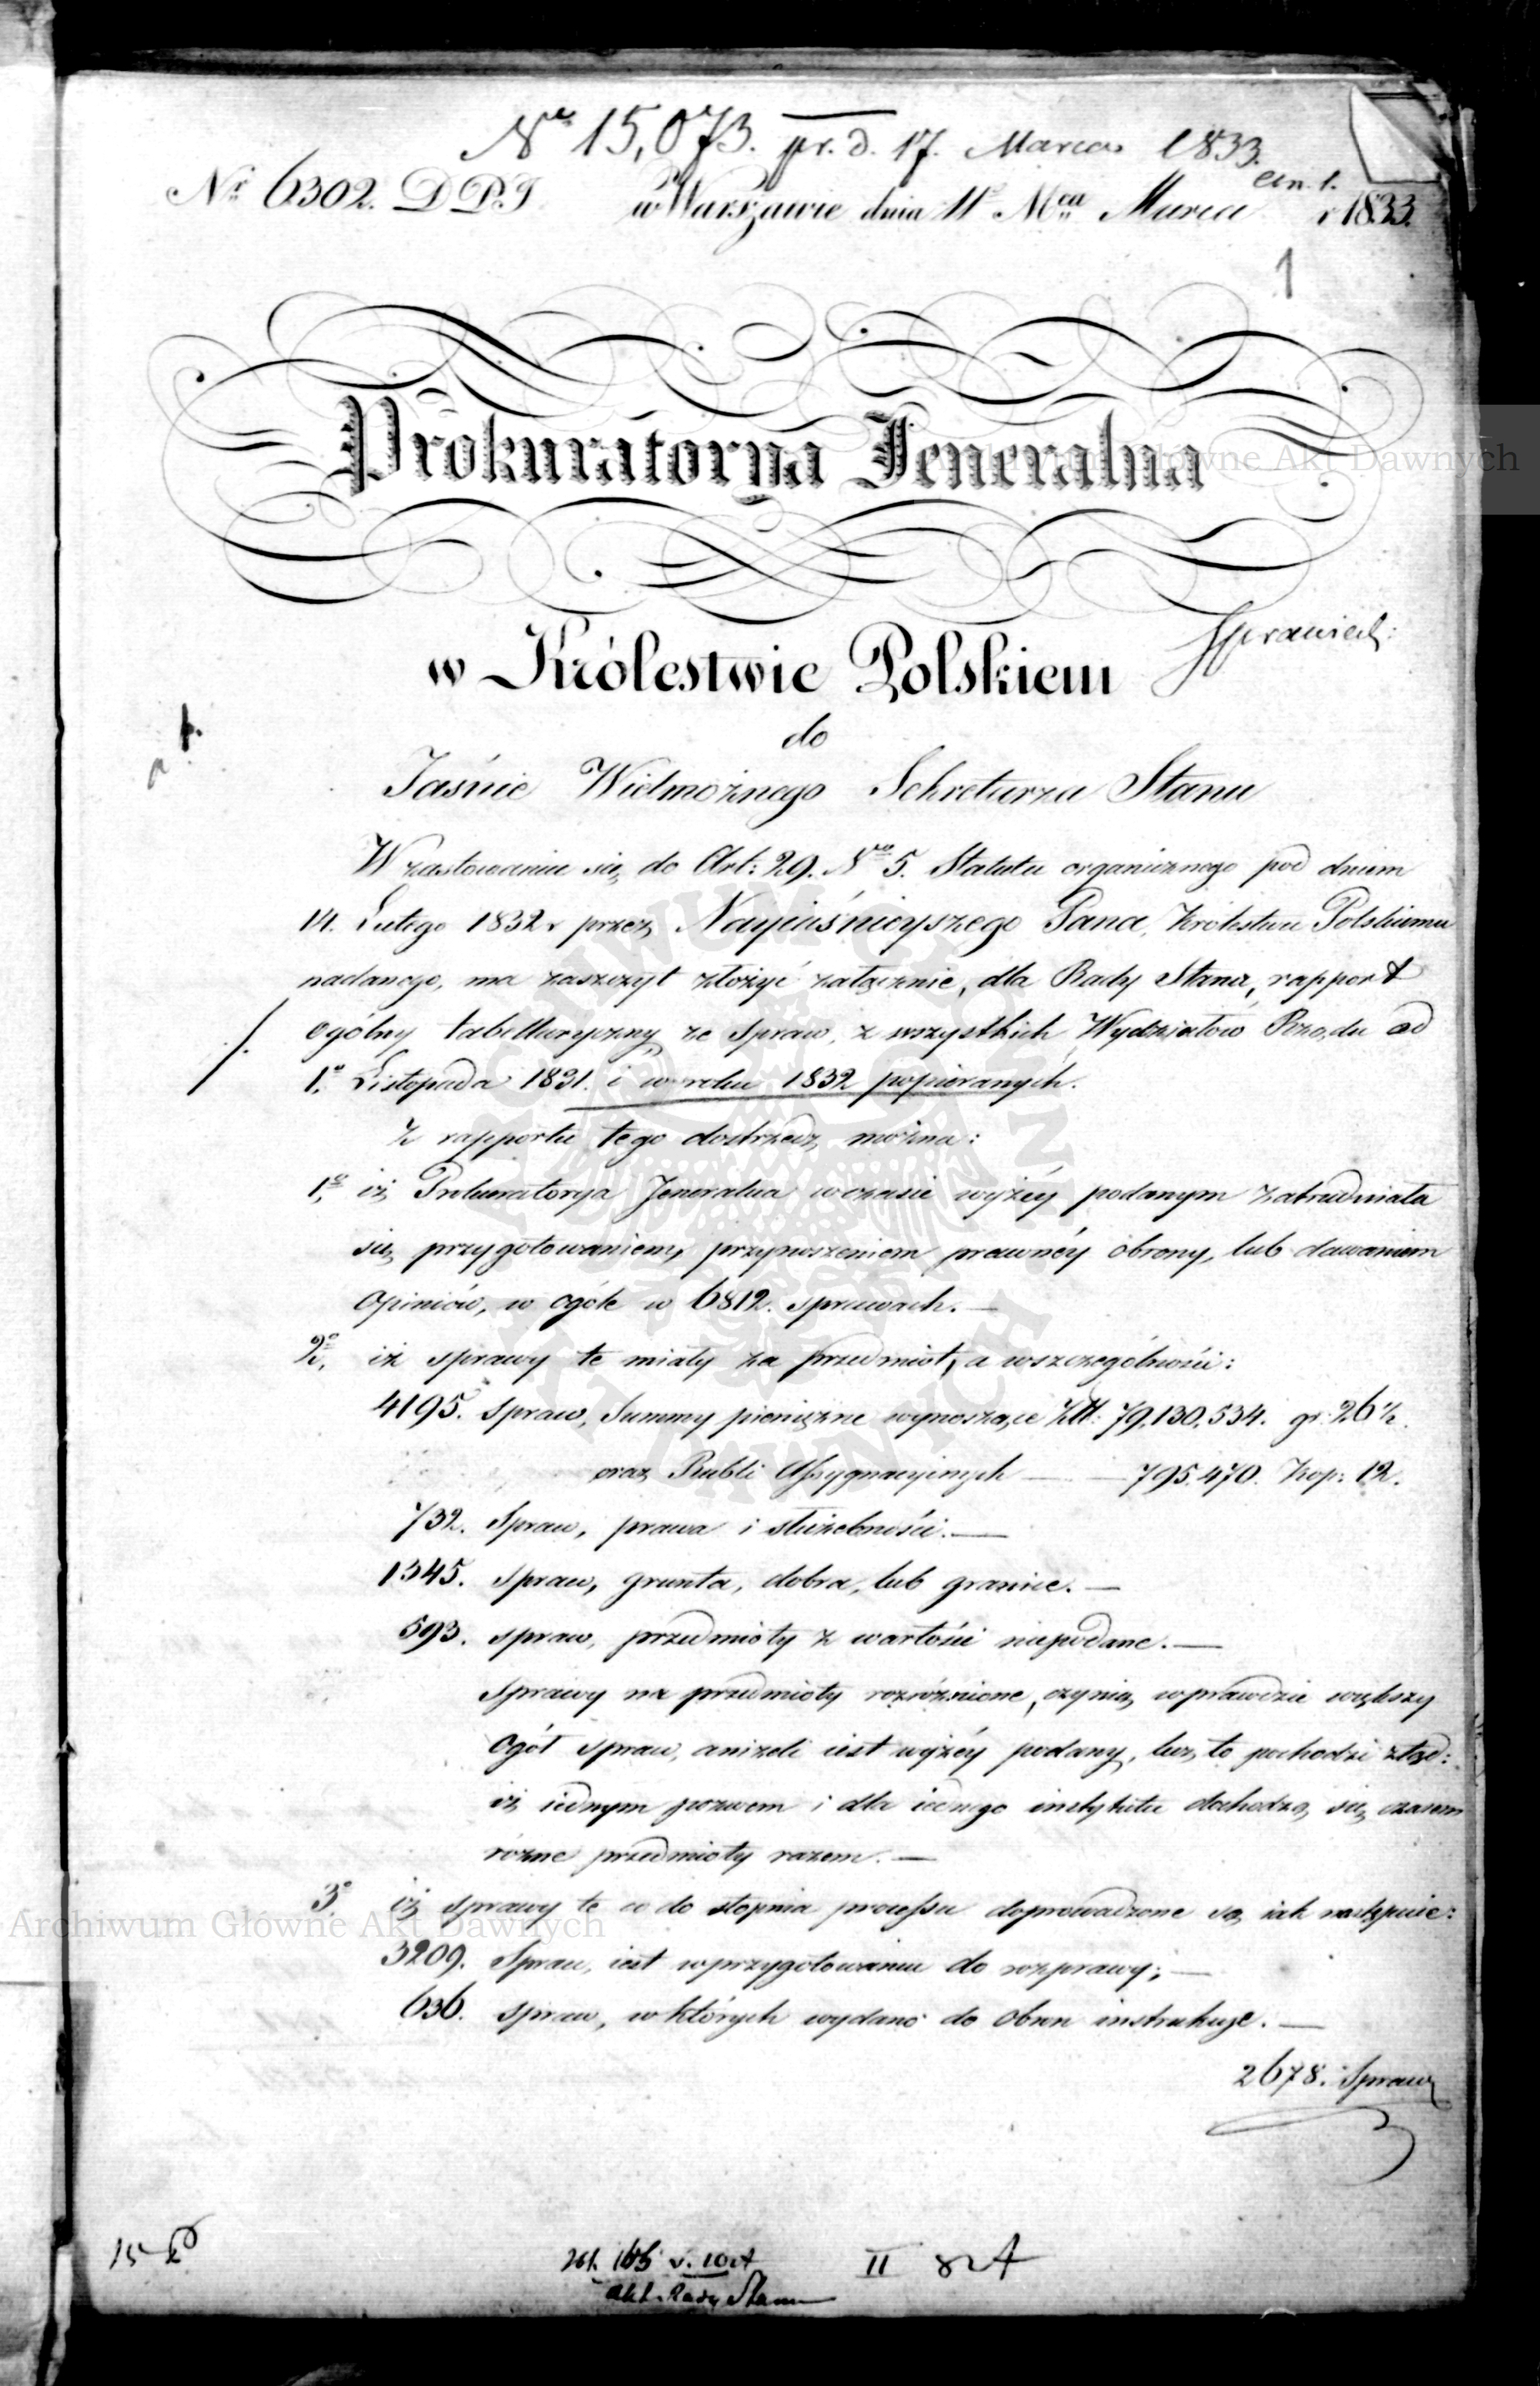 Nro 15,073. pr. d. 17. Marca 1833.
Nr 6302. D.P.J. w Warszawie dnia 11o Mca Marca r 1833.
1
Prokuratorya Jeneralna
w Królestwie Polskiem
Sprawied:
do
Jaśnie Wielmożnego Sekretarza Stanu
W zastosowaniu się do Art: 29. Nro 5. Statutu organicznego pod dniem
14. Lutego 1832 r przez Nayjaśnieyszego Pana, Królestwu Polskiemu
nadanego, ma zaszczyt złożyć załącznie, dla Rady Stanu, rapport
ogólny tabellaryczny ze spraw, z wszystkich Wydziałów Rządu od
1o. Listopada 1831. i w roku 1832 popieranych.
Z rapportu tego dostrzedz można:
1o. iż Prokuratorya Jeneralna w czasie wyżéy podanym zatrudniała
się przygotowaniem, przynoszeniem prawnéy obrony, lub dawaniem
Opiniów, w ogóle w 6812. sprawach. —
2o. iż sprawy te miały za przedmiot, a wszczególności:
4195. spraw, Summy pieniężne wynoszące Złt: 79,130,534. gr: 26½.
oraz Rubli Assygnacyinych — 795.470. kop: 12.
732. Spraw, prawa i służebności. —
1345. spraw, grunta, dobra, lub granice. —
593. spraw, przedmioty z wartości niepodane. —
Sprawy na przedmioty rozróżnione, czynią wprawdzie większy
Ogół spraw, aniżeli iest wyżéy podany, lecz to pochodzi ztąd:
iż iednym pozwem i dla iednego instytutu dochodzą się czasem
różne przedmioty razem. —
3o. iż sprawy te co do stopnia processu doprowadzone są iak następuie:
3209. Spraw, iest w przygotowaniu do rozprawy; —
636. spraw, w których wydano do obron instrukcye. —
2678. Spraw
Akt. Rady Stanu
II 82A
Archiwum Główne Akt Dawnych
Archiwum Główne Akt Dawnych